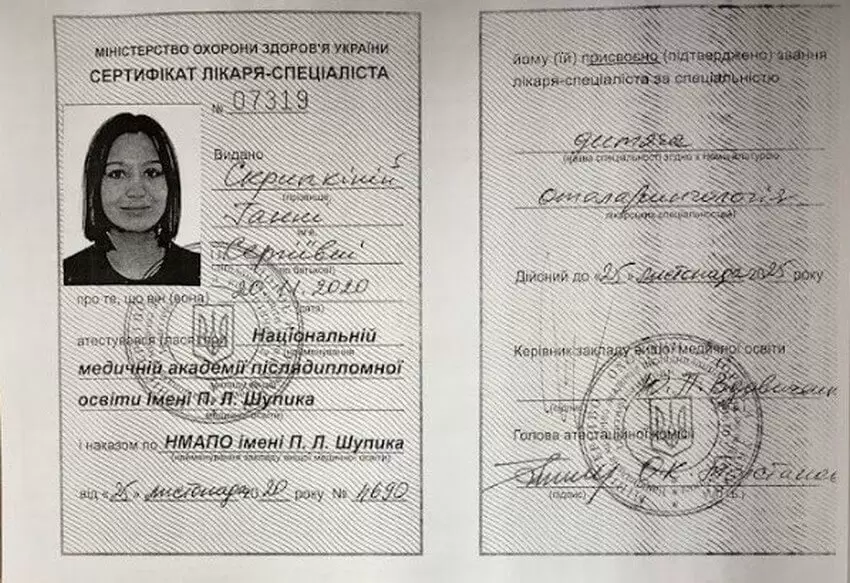 МІНІСТЕРСТВО ОХОРОНИ ЗДОРОВ'Я УКРАЇНИ
СЕРТИФІКАТ ЛІКАРЯ-СПЕЦІАЛІСТА
№ 07319
Видано
Скрипкіній
(прізвище)
Ганні
ім'я
Сергіївні
(по батькові)
про те, що він (вона) 20.11.2020
(дата)
атестувався (лася) при Національній
(найменування
медичній академії післядипломної
закладу вищої
освіти імені П. Л. Шупика
медичної освіти)
і наказом по НМАПО імені П. Л. Шупика
(найменування закладу вищої медичної освіти)
від «25» листопада 2020 року № 4690
йому (їй) присвоєно (підтверджено) звання
лікаря-спеціаліста за спеціальністю
дитяча
(назва спеціальності згідно з номенклатурою
отоларингологія
лікарських спеціальностей)
Дійсний до «25» листопада 2025 року
Керівник закладу вищої медичної освіти
(підпис)
Голова атестаційної комісії
О.К.
(підпис) (П.І.Б.)